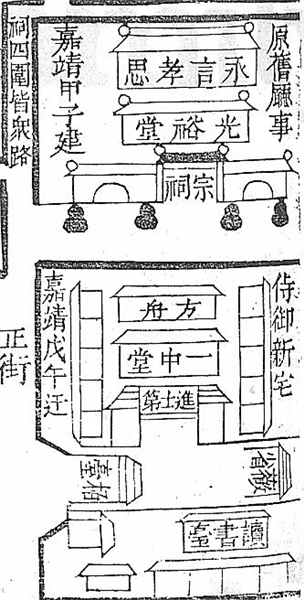 原舊廳事
永言孝思
光裕堂
宗祠
嘉靖甲子建
祠四圍皆衆路
侍御新宅
方舟
一中堂
進士第
嘉靖戊午迁
正街
柏臺
讀書堂